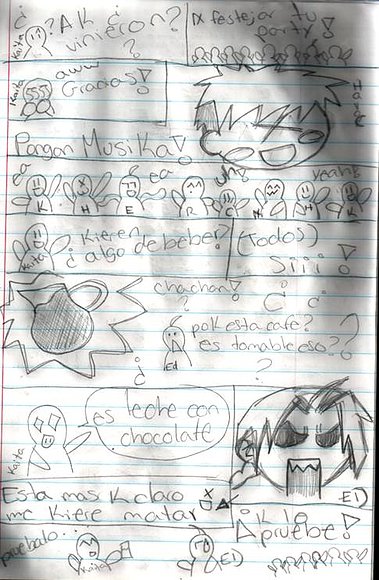 ¿? AK ¿
vinieron?
?
Kaita
IX festejar tu
party!
Kaita
aww
Gracias!
Pongan Musika!
ea
ea
yeah!
K H E R C N H K
Kaita
¿Kieren
algo de beber?
(todos)
Siii!
chachan!
?
¿ ¿
pok esta cafe?
es tomable eso??
?
¿
Ed
Kaita
es leche con
chocolate
Esta mas k claro
me kiere matar
ED
pruebalo...
Kaita
ED
K lo
pruebe!